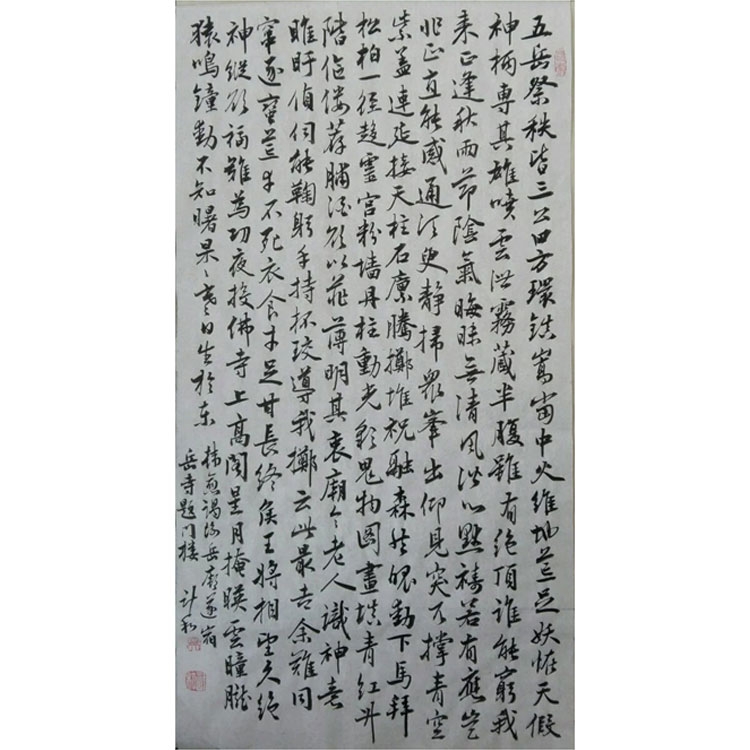 五岳祭秩皆三公四方環鎮嵩當中火維地荒足妖怪天假
神柄專其雄噴雲泄霧藏半腹雖有絕頂誰能窮我
来正逢秋雨節陰氣晦昧無清風潜心默禱若有應豈
非正直能感通須臾静掃眾峯出仰見突兀撐青空
紫盖連延接天柱石廪騰擲堆祝融森然魄動下馬拜
松柏一徑趋靈宫粉墙丹柱動光彩鬼物圖畫填青紅升
階傴僂荐脯酒欲以菲薄明其衷廟令老人識神意
睢盱偵伺能鞠躬手持杯珓導我擲云此最吉余難同
窜逐蛮荒幸不死衣食才足甘長终侯王將相望久绝
神縱欲福難為功夜投佛寺上高閣星月掩暎雲曈朧
猿鳴鐘動不知曙杲々寒日生於东
韓愈謁衡岳廟遂宿
岳寺題門楼